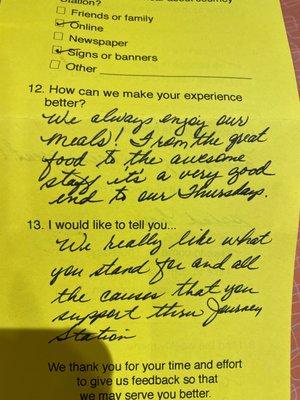 Station?
Friends or family
Online
Newspaper
Signs or banners
Other
12. How can we make your experience
better?
We always enjoy our
meals! From the great
food to the awesome
staff it's a very good
end to our Thursdays.
13. I would like to tell you...
We really like what
you stand for and all
the causes that you
support thru Journey
Station
We thank you for your time and effort
to give us feedback so that
we may serve you better.